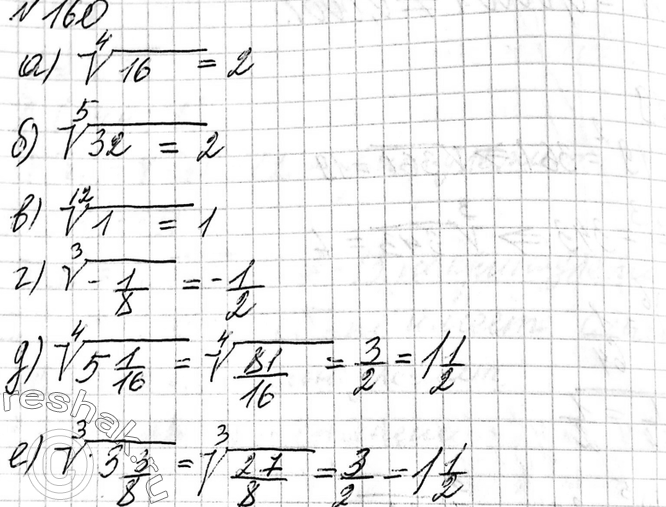 №160
а) ⁴√16 = 2
б) ⁵√32 = 2
в) ¹²√1 = 1
г) ³√-1/8 = -1/2
д) ⁴√5 1/16 = ⁴√81/16 = 3/2 = 1 1/2
е) ³√3 3/8 = ³√27/8 = 3/2 = 1 1/2
reshak.ru